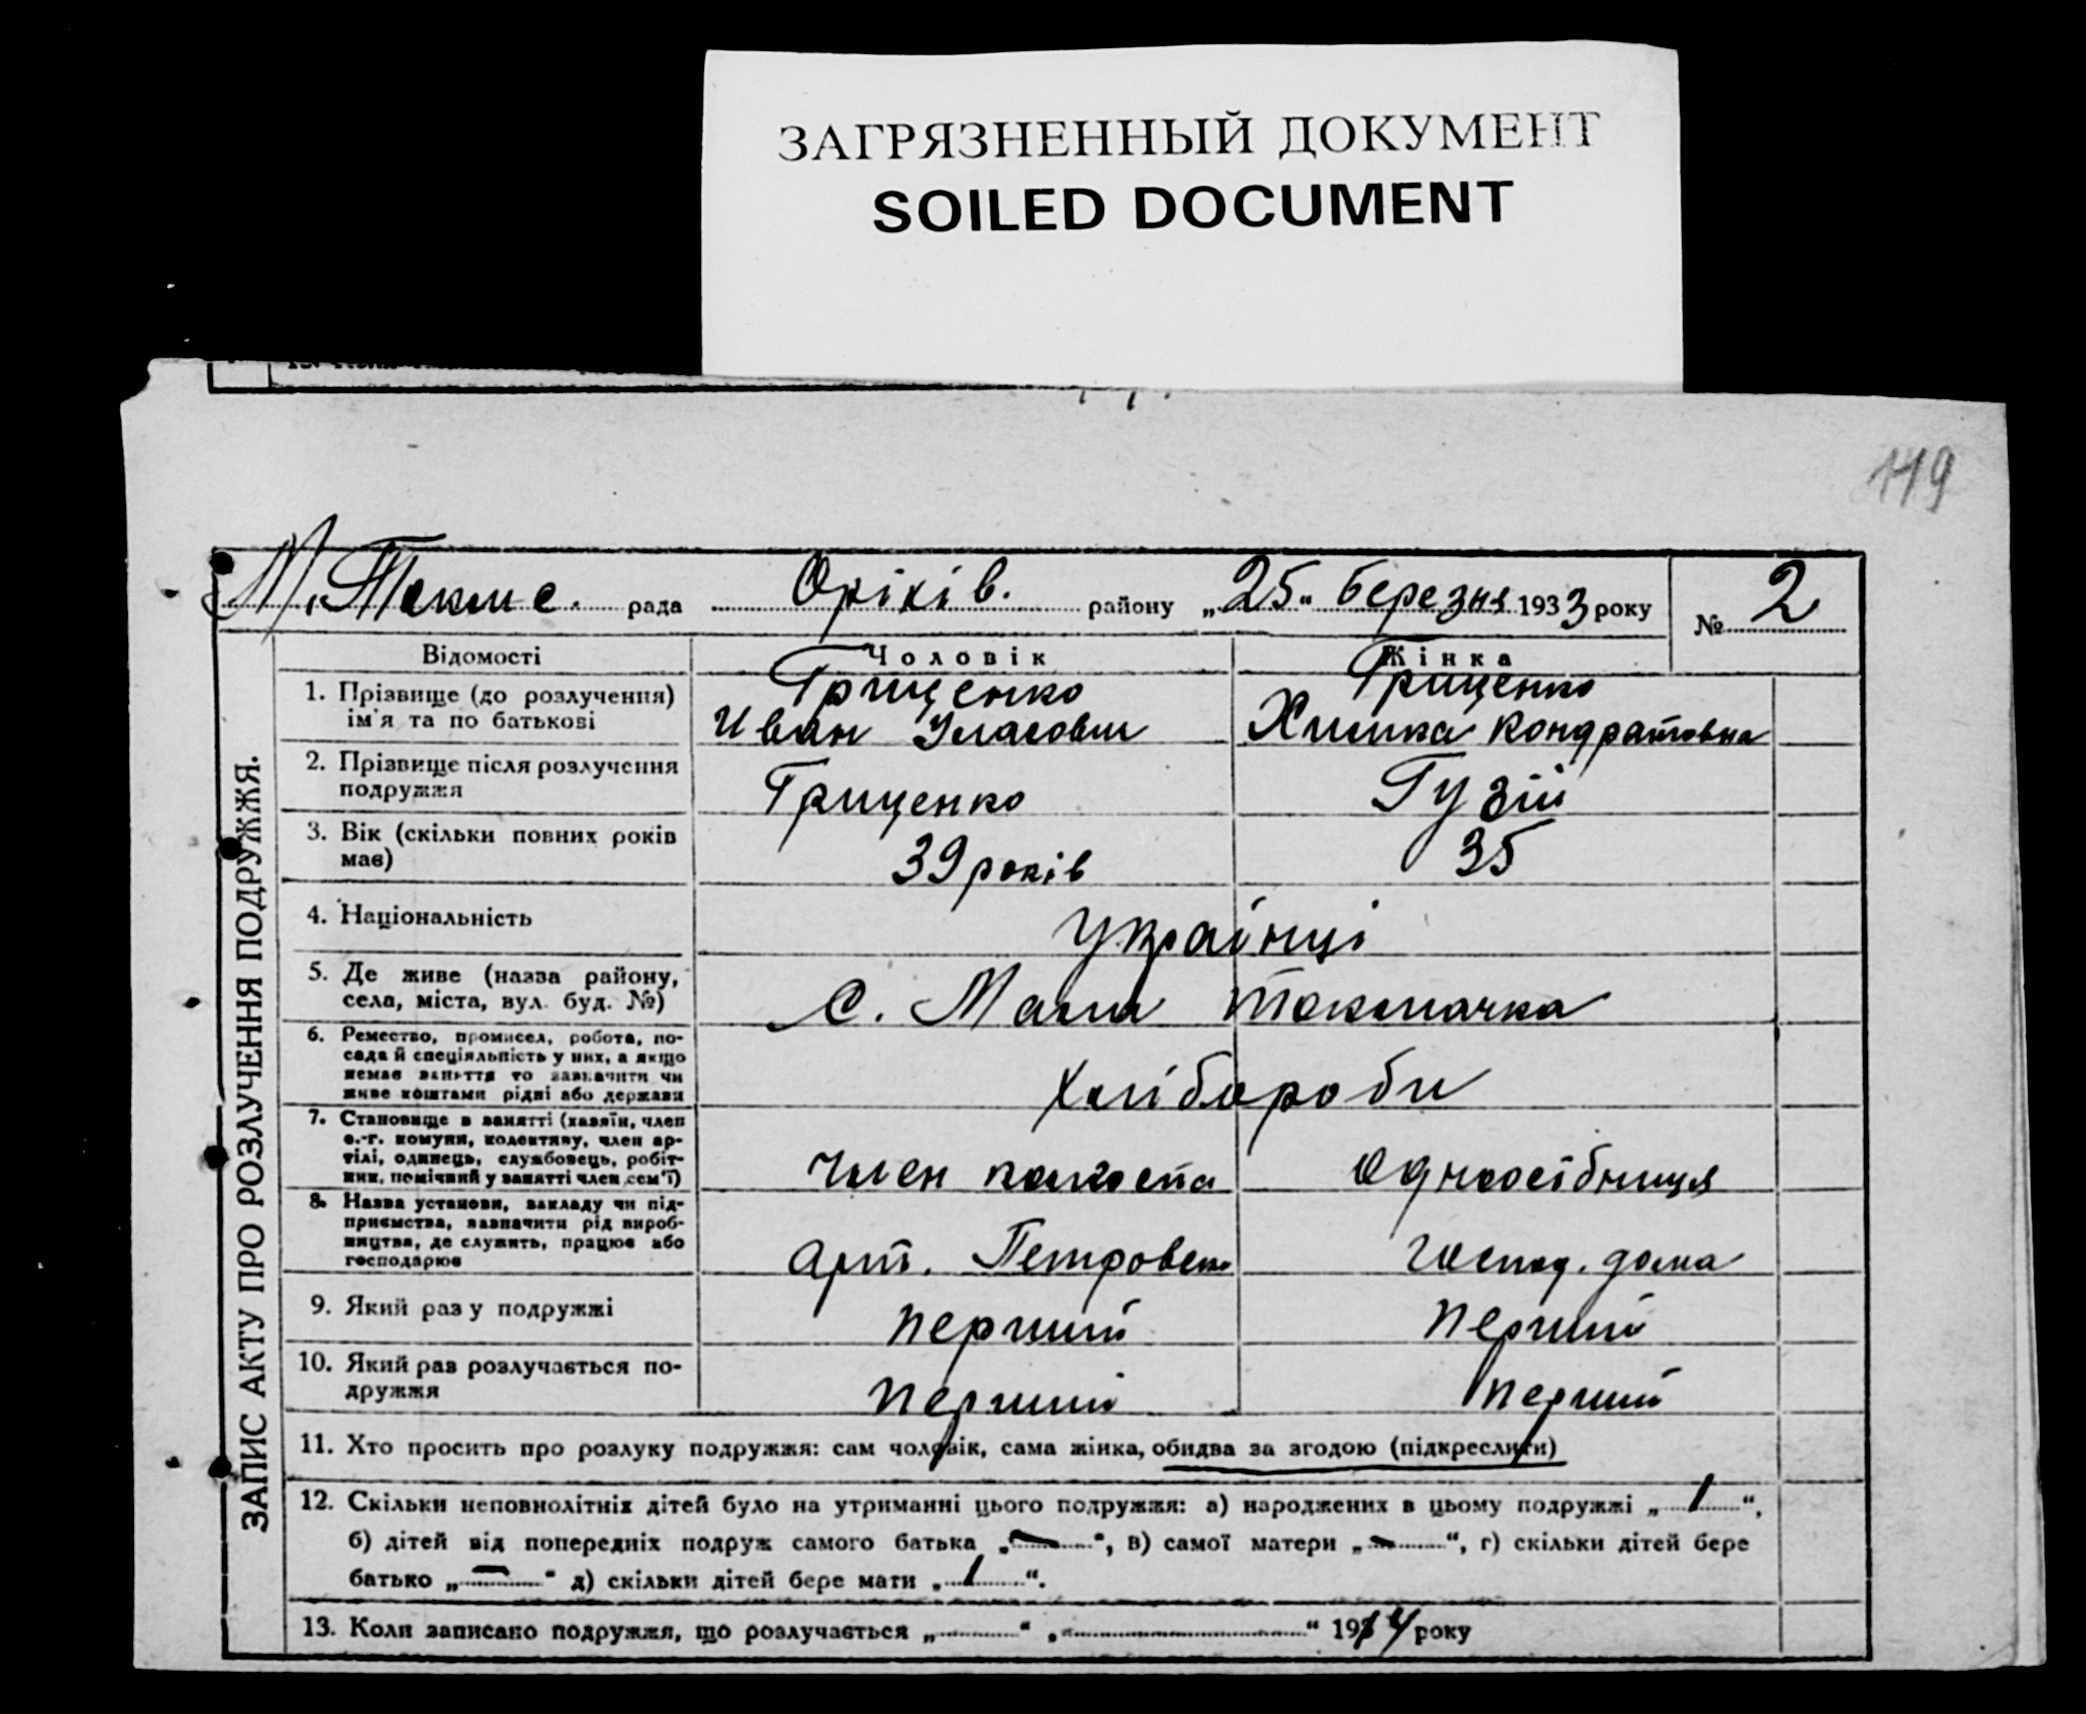 ЗАГРЯЗНЕННЫЙ ДОКУМЕНТ
SOILED DOCUMENT
119
М. Токм. с. рада Оріхів. району „25“ березня 1933 року № 2
ЗАПИС АКТУ ПРО РОЗЛУЧЕННЯ ПОДРУЖЖЯ.
Відомості Чоловік Жінка
1. Прізвище (до розлучення) Грищенко Грищенко
ім'я та по батькові Иван Уласович Химка Кондратовна
2. Прізвище після розлучення
подружжя Грищенко Гузій
3. Вік (скільки повних років
має) 39 років 35
4. Національність Українці
5. Де живе (назва району,
села, міста, вул. буд. №) с. Мала Токмачка
6. Ремество, промисел, робота, по-
сада й спеціяльність у них, а якщо
немає заняття то зазначити чи
живе коштами рідні або держави Хлібороби
7. Становище в занятті (хазяїн, член
с.-г. комуни, колективу, член ар-
тілі, одинець, службовець, робіт-
ник, помічний у занятті член сем'ї) член колгоспа одноосібниця
8. Назва установи, закладу чи під-
приємства, зазначити рід вироб-
ництва, де служить, працює або
господарює Арт. Петровськ господ. дома
9. Який раз у подружжі перший перший
10. Який раз розлучається по-
дружжя перший перший
11. Хто просить про розлуку подружжя: сам чоловік, сама жінка, обидва за згодою (підкреслити)
12. Скільки неповнолітніх дітей було на утриманні цього подружжя: а) народжених в цьому подружжі „ 1 “,
б) дітей від попередніх подруж самого батька „ — “, в) самої матери „ — “, г) скільки дітей бере
батько „ — “ д) скільки дітей бере мати „ 1 “.
13. Коли записано подружжя, що розлучається „ “ „ “ 1914 року